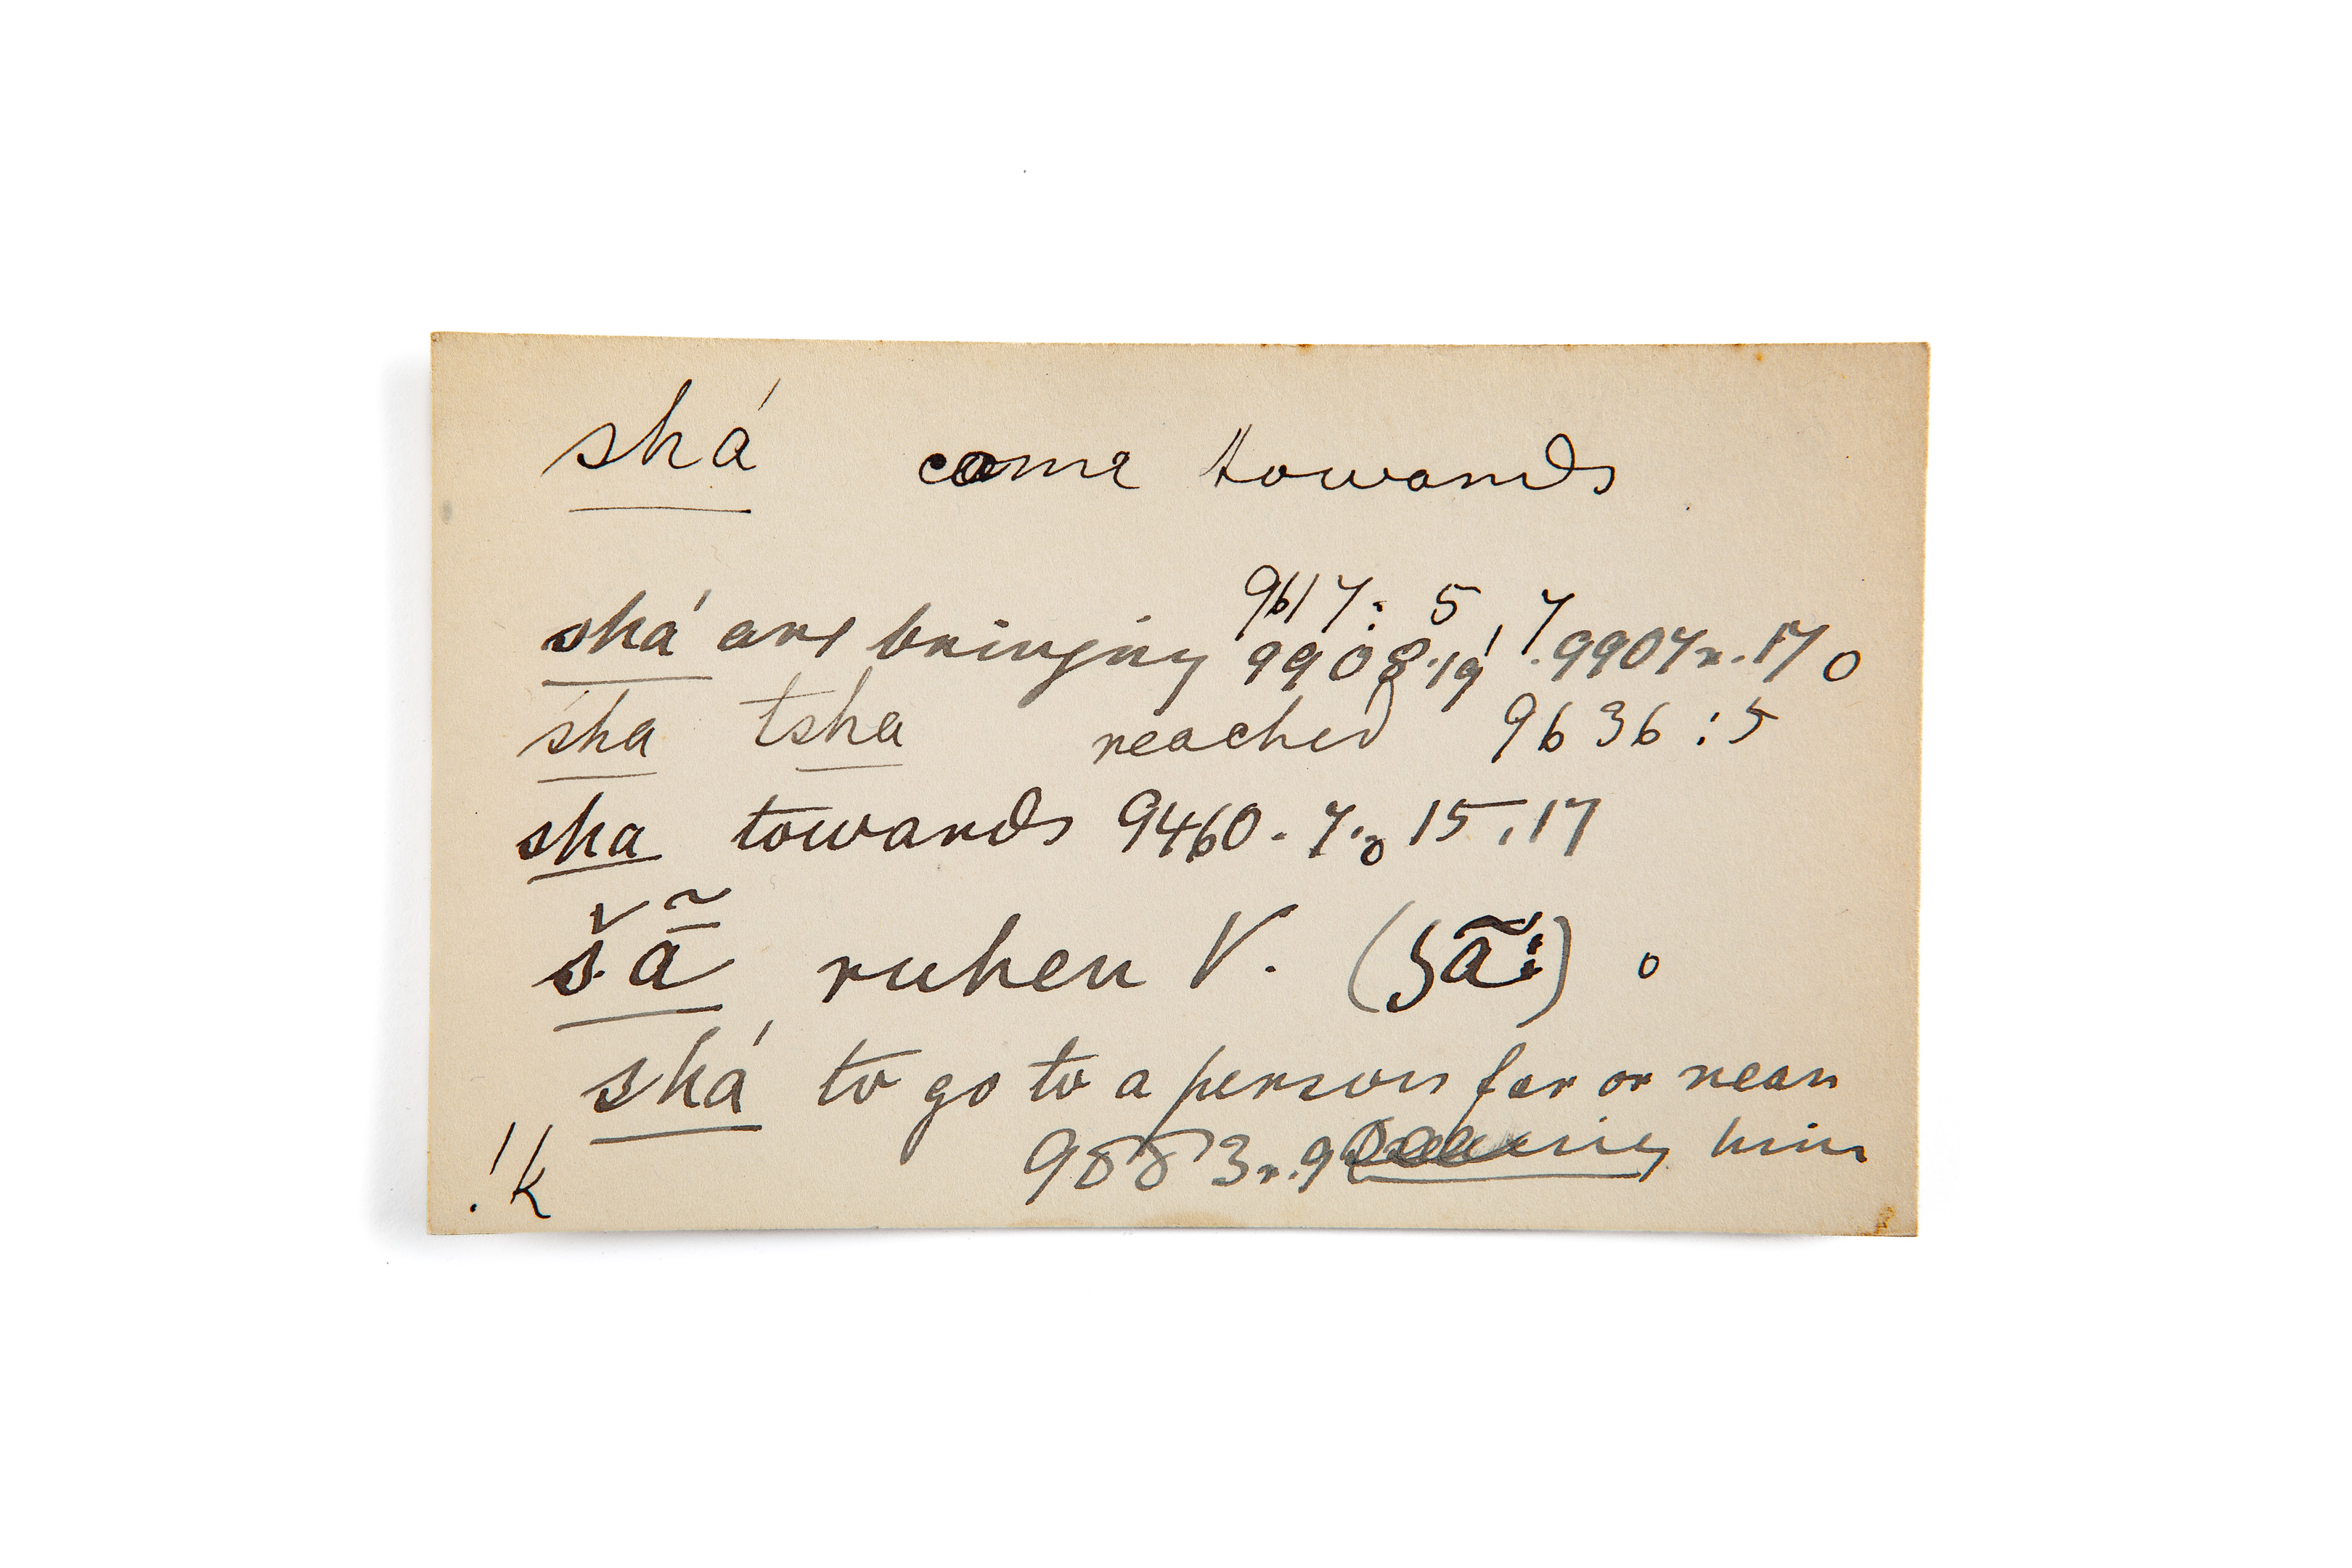 shá come towards
9617: 5, 7
shá are bringing 9908.19' .9907r.17 o
sha tsha reached 9636:5
sha towards 9460. 7. 15.17
šã ruhen V. (ʒã:) o
shá to go to a person far or near
9883r.9 him
!k